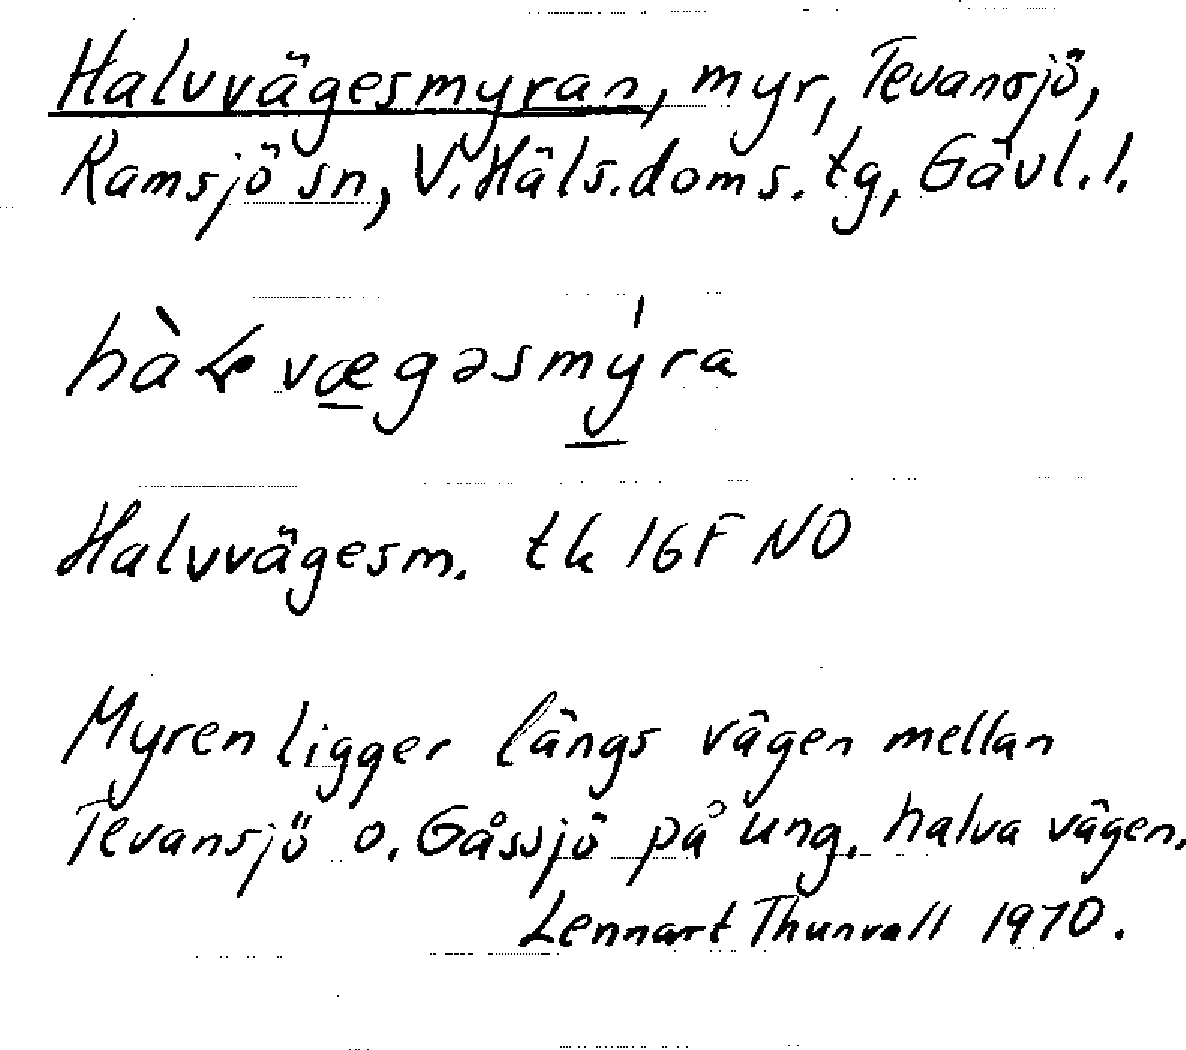 Haluvägesmyran, myr, Tevansjö,
Ramsjö sn, V. Häls. doms. tg, Gävl. l.
Haluvägesm. tk 16F NO
Myren ligger längs vägen mellan
Tevansjö o. Gåssjö på ung. halva vägen.
Lennart Thunvall 1970.